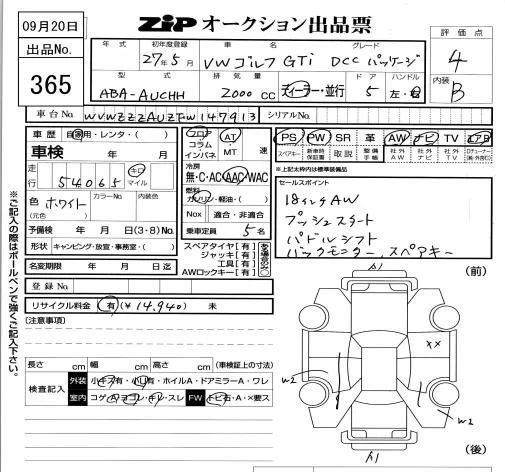 09月20日
ZIP オークション出品票
出品No.
365
評価点
4
内装
B
年式 初年度登録 車名 グレード
27年5月 VWゴルフ GTi DCCパッケージ
型式 排気量 ドア ハンドル
ABA-AUCHH 2000cc ディーラー・並行 5 左・右
車台No. WVWZZZAUZFW147913 シリアルNo.
車歴 自家用・レンタ・( )
車検 年 月
走行 54065 キロ マイル
色 (元色) ホワイト カラーNo. 内装色
予備検 年 月 日(3・8)No.
形状 キャンピング・放宣・事務室・( )
名変期限 年 月 日迄
登録No.
リサイクル料金 有(¥14,940) 未
フロア コラム インパネ
AT MT 速
冷房
無・C・AC AAC WAC
燃料
ガソリン・軽油・( )
Nox 適合・非適合
乗車定員 5名
スペアタイヤ[有]
ジャッキ[有]
工具[有]
AWロックキー[有]
PS PW SR 革 AW ナビ TV エアB
スペアキー 新車時保証書 取説 整備手帳 社外AW 社外ナビ 社外TV
※上記太枠内は標準装備品
セールスポイント
18インチAW
プッシュスタート
パドルシフト
バックモニター,スペアキー
(注意事項)
長さ cm 幅 cm 高さ cm (車検証上の寸法)
検査記入
外装 小キズ有・小凹有・ホイルA・ドアミラーA・ワレ
室内 コゲ・A・ヨゴレ・キレ・スレ FW トビ石・A・×要ス
(前)
××
w2
w2
(後)
※ご記入の際はボールペンで強くご記入下さい。